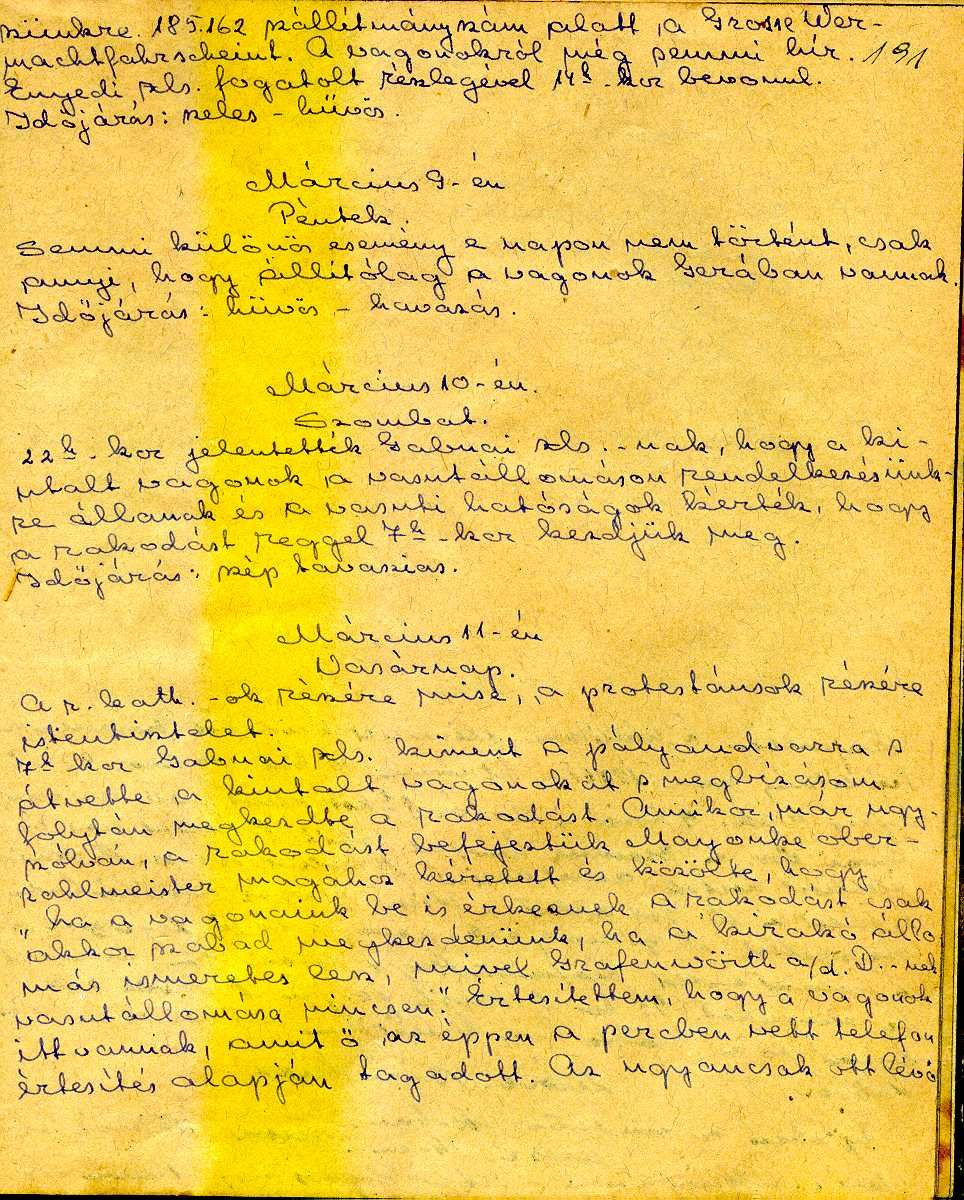 szünkre 185.162 szállítmányszám alatt, a Grosse Wer-
machtfahrscheint. A vagonokról még semmi hír.
191
Enyedi szls. fogatolt részlegével 14h-kor bevonul.
Időjárás: szeles - hüvös.
Március 9-én
Péntek.
Semmi különös esemény e napon nem történt, csak
annyi, hogy állítólag a vagonok Gerában vannak.
Időjárás: hüvös - havazás.
Március 10-én.
Szombat.
22h-kor jelentették Gabnai szls.-nak, hogy a ki-
utalt vagonok a vasutállomáson rendelkezésünk-
re állanak és a vasuti hatóságok kérték, hogy
a rakodást reggel 7h-kor kezdjük meg.
Időjárás: szép tavaszias.
Március 11-én
Vasárnap.
A r. kath.-ok részére mise, a protestánsok részére
istentisztelet.
7h-kor Gabnai szls. kiment a pályaudvarra s
átvette a kiutalt vagonokat s megbízásom
folytán megkezdte a rakodást. Amikor, már ugy-
szólván, a rakodást befejeztük Mayonke ober-
zahlmeister magához kéretett és közölte, hogy
"ha a vagonaink be is érkeznek a rakodást csak
akkor szabad megkezdenünk, ha a kirakó állo
más ismeretes lesz, mivel Grafenwörth a/d. D.-nek
vasutállomása nincsen." Értesítettem, hogy a vagonok
itt vannak, amit ő az éppen a percben vett telefon
értesítés alapján tagadott. Az ugyancsak ott lévő